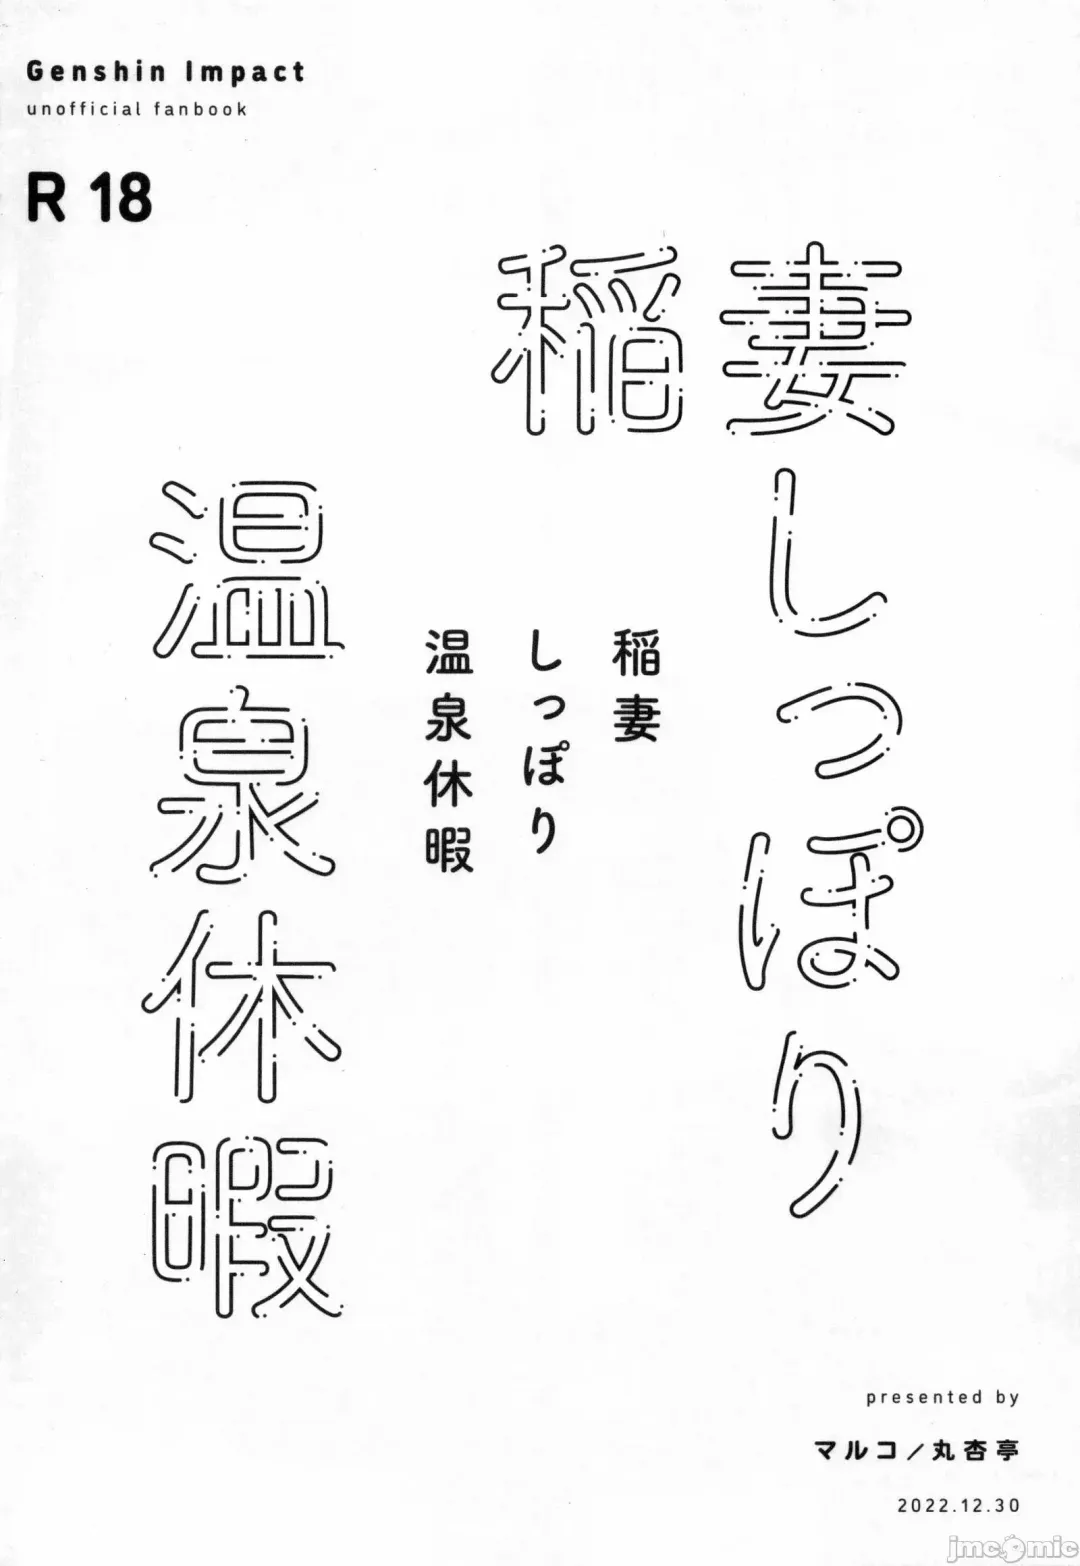 Genshin Impact
unofficial fanbook
R 18
稲妻
しっぽり
温泉休暇
稲妻
しっぽり
温泉休暇
presented by
マルコ／丸杏亭
2022.12.30
jmcomic